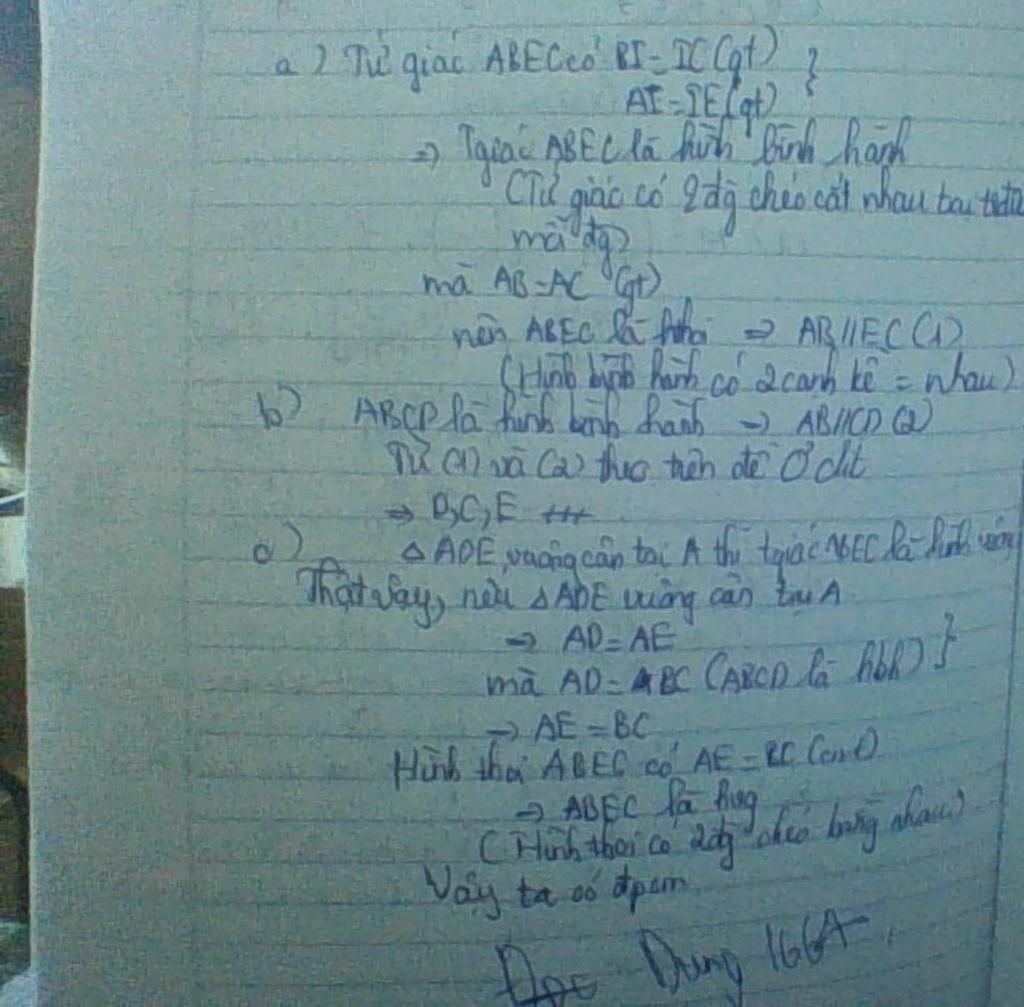 a) Tứ giác ABEC có BI = IC (gt) }
AI = IE (gt)
=> Tgiác ABEC là hình bình hành
(Tứ giác có 2 đg chéo cắt nhau tại
mỗi đg)
mà AB = AC (gt)
nên ABEC là hthoi => AB//EC (1)
(Hình bình hành có 2 cạnh kề = nhau)
b) ABCD là hình bình hành => AB//CD (2)
Từ (1) và (2) theo tiên đề Ơclit
=> D,C,E
c) △ ADE vuông cân tại A thì tgiác ABEC là hình vuông
Thật vậy, nếu △ ADE vuông cân tại A
=> AD = AE
mà AD = BC (ABCD là hbh) }
=> AE = BC
Hình thoi ABEC có AE = BC (cmt)
=> ABEC là hvg
(Hình thoi có 2 đg chéo bằng nhau)
Vậy ta có đpcm
Dung 166A